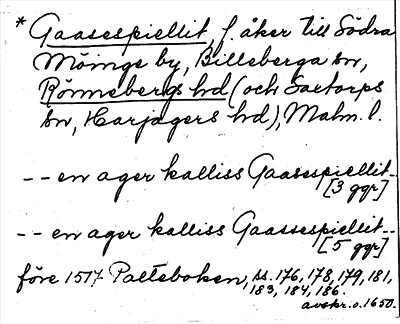 * Gaasespiellit, f. åker till Södra
Möinge by, Billeberga sn,
Rönnebergs hd (och Saxtorps
sn, Harjagers hd), Malm. l.
-- en ager kalliss Gaasespiellit--
[3 ggr]
-- en ager kalliss Gaassespiellit--
[5 ggr]
före 1577 Palteboken, ss. 176, 178, 179, 181,
183, 184, 186.
avskr. o. 1650.